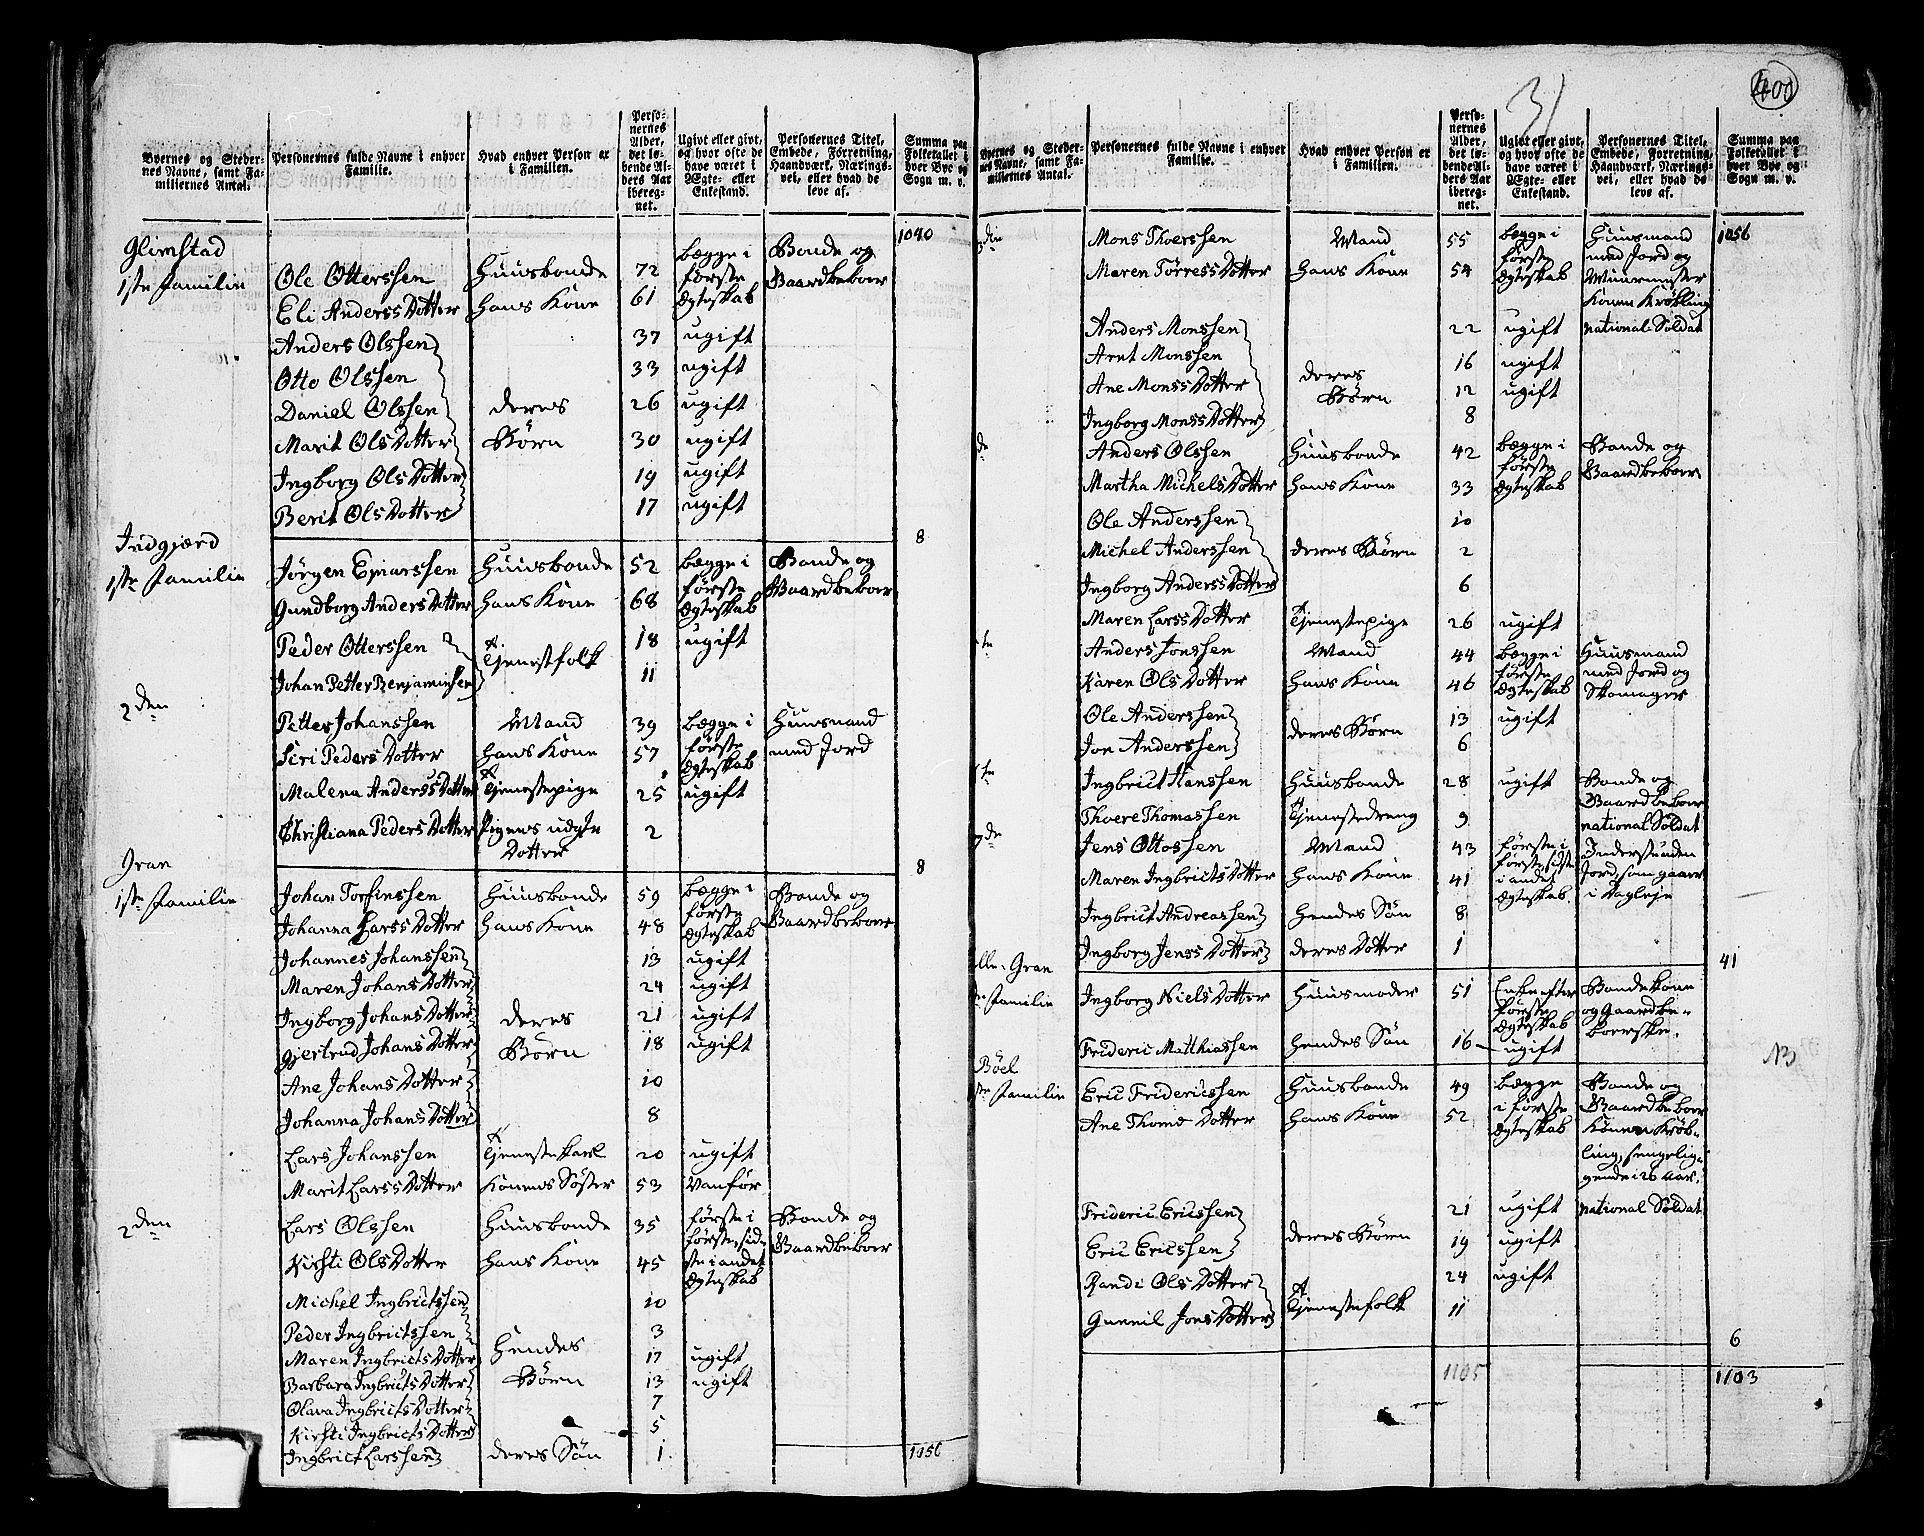 400
31
Byernes og Steder-
nes Navne, samt Fa-
miliernes Antal.
Personernes fulde Navne i enhver
Familie.
Hvad enhver Person er
i Familien.
Perso-
nernes
Alder,
det lø-
bende Al-
ders Aar
ibereg-
net.
Ugivt eller givt,
og hvor ofte de
have været i
Ægte- eller
Enkestand.
Personernes Titel,
Embede, Forretning,
Haandværk, Nærings-
vei, eller hvad de
leve af.
Summa paa
Folketallet i
hver Bye og
Sogn m. v.
1040
Glimstad
1ste Familie
Ole Otterssen Huusbonde 72 begge i første Ægteskab Bonde og Gaardbeboer
Eli Anderss Dotter hans Kone 61
Anders Olssen 37 ugift
Otto Olssen 33 ugift
Daniel Olssen deres 26 ugift
Marit Ols Dotter Børn 30 ugift
Ingborg Ols Dotter 19 ugift
Berit Ols Dotter 17 ugift
8
Indgjerd
1ste Familie
Jörgen Ejnarssen Huusbonde 52 begge i første Ægteskab Bonde og Gaardbeboer
Gundborg Anders Dotter hans Kone 68
Peder Otterssen Tjenestfolk 18 ugift
Johan Petter Benjaminsen 11
2den
Petter Johanssen Mand 39 begge i første Ægteskab Huusmand med Jord
Siri Peders Dotter hans Kone 57
Malena Anderss Dotter Tjenestepige 25 ugift
Christiana Peders Dotter Pigens uægte Dotter 2
8
Gran
1ste Familie
Johan Torfinssen Huusbonde 59 begge i første Ægteskab Bonde og Gaardbeboer
Johanna Larss Dotter hans Kone 48
Johannes Johanssen 13 ugift
Maren Johans Dotter 24 ugift
Ingborg Johans Dotter deres 21 ugift
Gjertrud Johans Dotter Børn 18 ugift
Ane Johans Dotter 10
Johanna Johans Dotter 8
Lars Johanssen Tjenestekarl 20 ugift
Marit Larss Dotter Konens Søster 53 Vanför
2den
Lars Olssen Huusbonde 35 første i første, sidste i andet Ægteskab Bonde og Gaardbeboer
Kirsti Ols Dotter hans Kone 45
Michel Ingbrictssen 10
Peder Ingbrictssen 3
Maren Ingbricts Dotter Hendes 17 ugift
Barbara Ingbricts Dotter Børn 13 ugift
Olava Ingbricts Dotter 7
Kirsti Ingbricts Dotter 5
Ingbrict Larssen deres Sön 1
1056
Byernes og Steder-
nes Navne, samt Fa-
miliernes Antal.
Personernes fulde Navne i enhver
Familie.
Hvad enhver Person er
i Familien.
Perso-
nernes
Alder,
det lø-
bende Al-
ders Aar
ibereg-
net.
Ugivt eller givt,
og hvor ofte de
have været i
Ægte- eller
Enkestand.
Personernes Titel,
Embede, Forretning,
Haandværk, Nærings-
vei, eller hvad de
leve af.
Summa paa
Folketallet i
hver Bye og
Sogn m. v.
1056
Mons Thoerssen Mand 55 begge i første Ægteskab Huusmand med Jord og Muurmester Konen Krøbling
Maren Törress Dotter hans Kone 54
Anders Monssen 22 ugift national-Soldat
Arnt Monssen 16 ugift
Ane Monss Dotter deres Børn 12 ugift
Ingborg Monss Dotter 8
de
Anders Olssen Huusbonde 42 begge i første Ægteskab Bonde og Gaardbeboer
Martha Michels Dotter hans Kone 33
Ole Anderssen 10
Michel Anderssen deres Børn 2
Ingborg Anderss Dotter 6
Maren Larss Dotter Tjenestepige 26 ugift
te
Anders Jonssen Mand 44 begge i første Ægteskab Huusmand med Jord og Skomager
Karen Ols Dotter hans Kone 46
Ole Anderssen deres Børn 13 ugift
Jon Anderssen 6
te
Ingbrict Hanssen Huusbonde 28 ugift Bonde og Gaardbeboer national Soldat
Thoere Thomassen Tjenestedreng 9
7de
Jens Ottossen Mand 43 første i første, sidste i andet Ægteskab Inderst uden Jord, som gaaer i Dagleje
Maren Ingbricts Dotter hans Kone 41
Ingbrict Andreassen hendes Sön 8
Ingborg Jenss Dotter deres Dotter 1
41
lle-Gran
te Familie
Ingborg Niels Dotter Huusmoder 51 Enke efter første Ægteskab Bondekone og Gaardbeboerske.
Frideric Matthiassen hendes Sön 16 ugift
Böel
te Familie
Eric Fridericssen Huusbonde 49 begge i første Ægteskab Bonde og Gaardbeboer Konen Krøbling, sengeliggende i 26 Aar.
Ane Thome Dotter hans Kone 52
Frideric Ericssen deres Børn 21 ugift national Soldat
Eric Ericssen 19 ugift
Randi Ols Dotter Tjenestefolk 24 ugift
Gunnil Jons Dotter 11
6
1105
1103